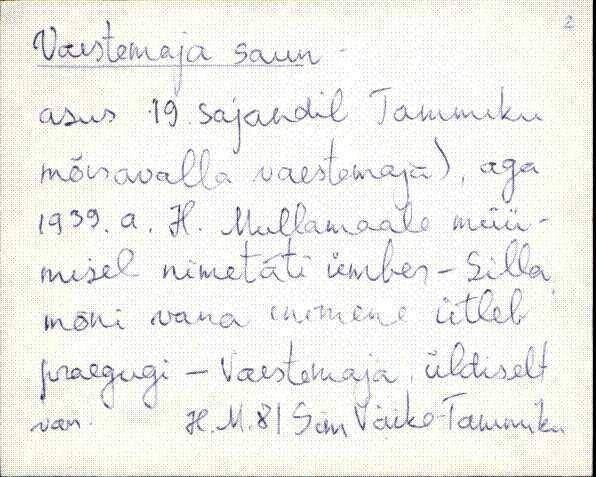 2
Vaestemaja saun -
asus 19. sajandil Tammiku
mõisavalla vaestemaja), aga
1939. a. H. Mullamaale müü-
misel nimetati ümber - Silla,
mõni vana inimene ütleb
praegugi - Vaestemaja, üldiselt
van. H. M. 81 Sim Väike-Tammiku